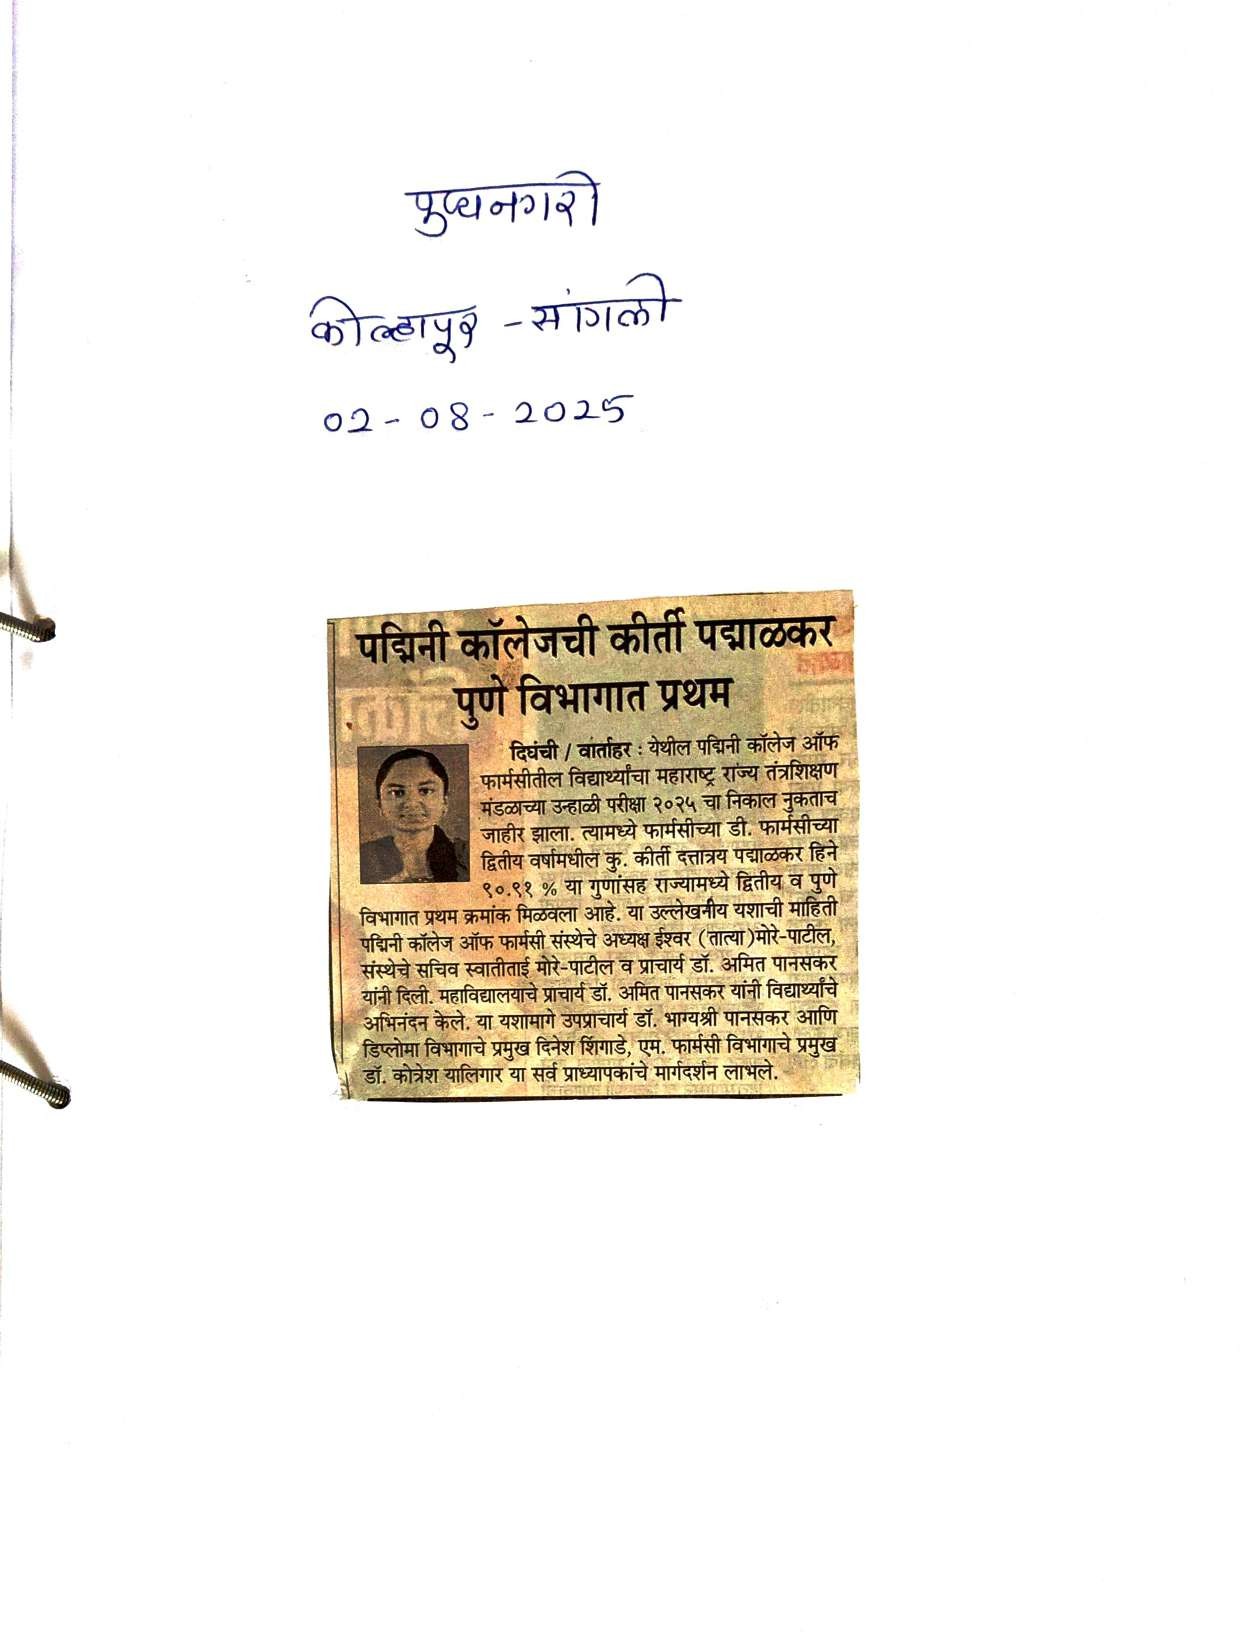 पुण्यनगरी
कोल्हापूर - सांगली
02 - 08 - 2025
पद्मिनी कॉलेजची कीर्ती पद्माळकर
पुणे विभागात प्रथम
दिघंची / वार्ताहर : येथील पद्मिनी कॉलेज ऑफ
फार्मसीतील विद्यार्थ्यांचा महाराष्ट्र राज्य तंत्रशिक्षण
मंडळाच्या उन्हाळी परीक्षा २०२५ चा निकाल नुकताच
जाहीर झाला. त्यामध्ये फार्मसीच्या डी. फार्मसीच्या
द्वितीय वर्षामधील कु. कीर्ती दत्तात्रय पद्माळकर हिने
९०.९१ % या गुणांसह राज्यामध्ये द्वितीय व पुणे
विभागात प्रथम क्रमांक मिळवला आहे. या उल्लेखनीय यशाची माहिती
पद्मिनी कॉलेज ऑफ फार्मसी संस्थेचे अध्यक्ष ईश्वर (तात्या)मोरे-पाटील,
संस्थेचे सचिव स्वातीताई मोरे-पाटील व प्राचार्य डॉ. अमित पानसकर
यांनी दिली. महाविद्यालयाचे प्राचार्य डॉ. अमित पानसकर यांनी विद्यार्थ्यांचे
अभिनंदन केले. या यशामागे उपप्राचार्य डॉ. भाग्यश्री पानसकर आणि
डिप्लोमा विभागाचे प्रमुख दिनेश शिंगाडे, एम. फार्मसी विभागाचे प्रमुख
डॉ. कोत्रेश यालिगार या सर्व प्राध्यापकांचे मार्गदर्शन लाभले.